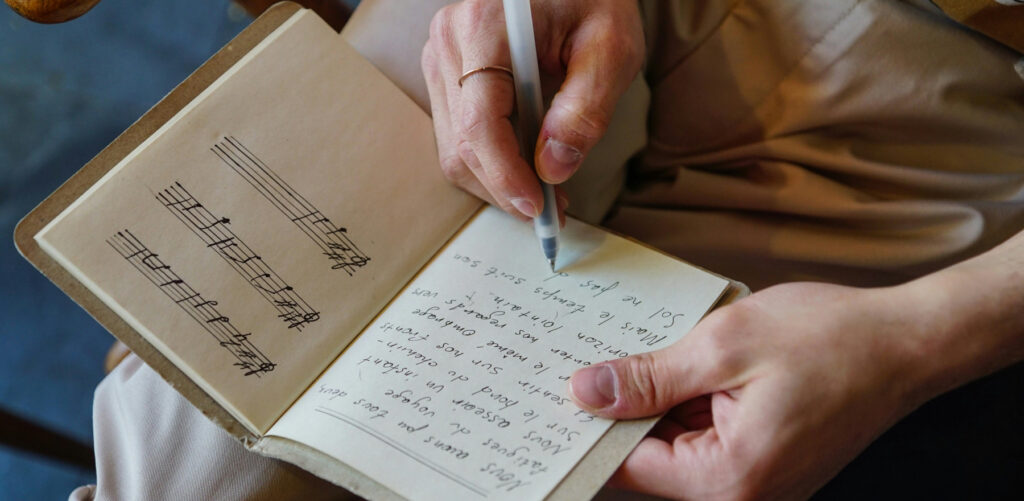 Nous avons pu tous deux
fatigués du voyage
Nous asseoir un instant
sur le bord du chemin-
Et sentir sur nos fronts
le même ombrage
nos regards vers
horizon lointain.
Mais le temps suit son
Sol ne pas